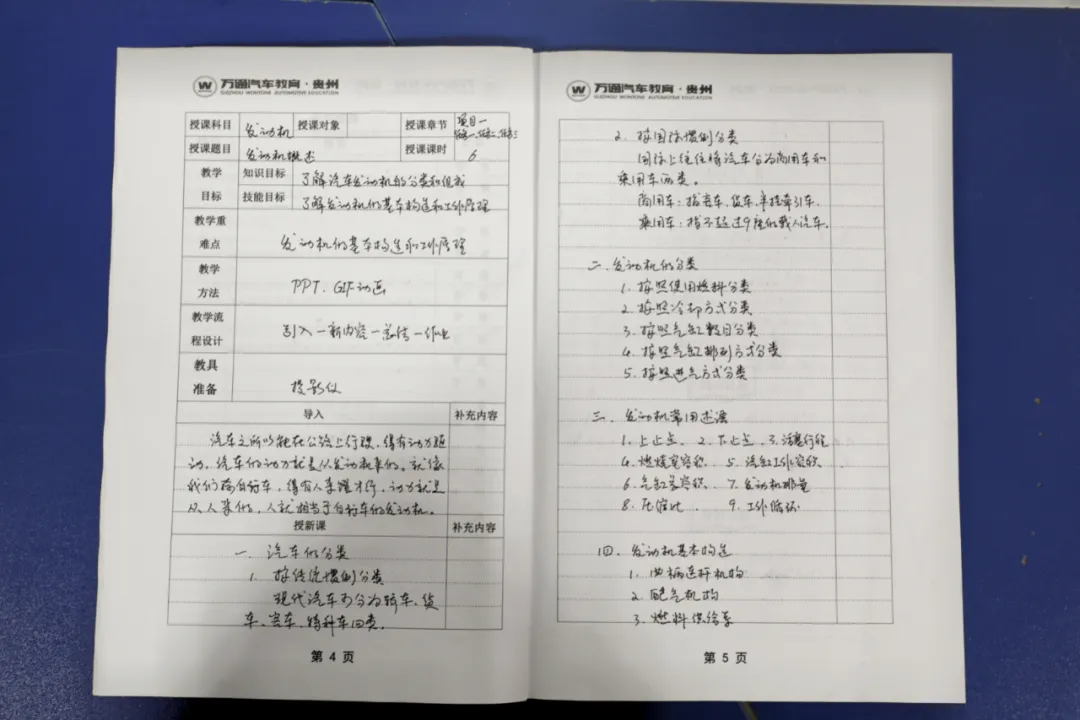 万通汽车教育·贵州
GUIZHOU WONTONE AUTOMOTIVE EDUCATION
授课科目 发动机 授课对象 授课章节 项目一
任务一、任务二、任务三
授课题目 发动机概述 授课课时 6
教学目标 知识目标 了解汽车发动机的分类和组成
技能目标 了解发动机的基本构造和工作原理
教学重难点 发动机的基本构造和工作原理
教学方法 PPT、GIF动画
教学流程设计 引入一新内容一总结一作业
教具准备 投影仪
导入 补充内容
汽车之所以能在公路上行驶，得有动力驱
动，汽车的动力就是从发动机来的。就像
我们骑自行车，得有人来蹬才行，动力就是
从人来的，人就相当于自行车的发动机。
授新课 补充内容
一、汽车的分类
1. 按传统惯例分类
现代汽车可分为轿车、货
车、客车、特种车四类。
第 4 页
万通汽车教育·贵州
GUIZHOU WONTONE AUTOMOTIVE EDUCATION
2. 按国际惯例分类
国际上往往将汽车分为商用车和
乘用车两类。
商用车：指客车、货车、半挂牵引车.
乘用车：指不超过9座的载人汽车。
二. 发动机的分类
1. 按照使用燃料分类
2. 按照冷却方式分类
3. 按照气缸数目分类
4. 按照气缸排列方式分类
5. 按照进气方式分类
三. 发动机常用术语
1. 上止点、 2. 下止点、 3. 活塞行程
4. 燃烧室容积、 5. 汽缸工作容积、
6. 气缸总容积、 7. 发动机排量
8. 压缩比、 9. 工作循环
四. 发动机基本构造
1. 曲柄连杆机构
2. 配气机构
3. 燃料供给系
第 5 页